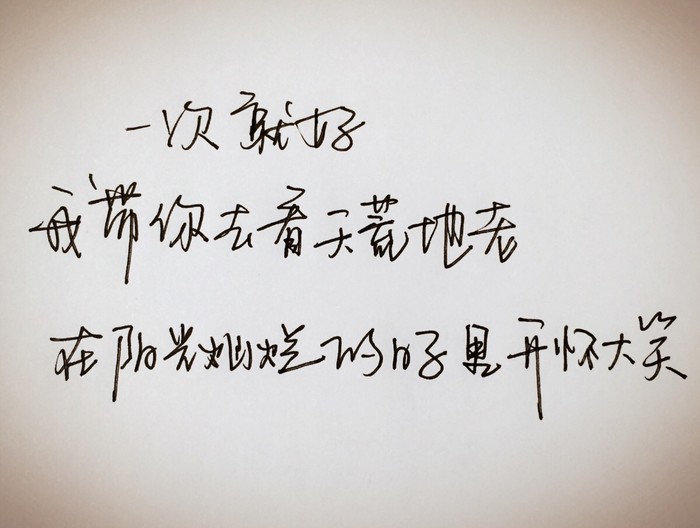 一次就好
我带你去看天荒地老
在阳光灿烂的日子里开怀大笑